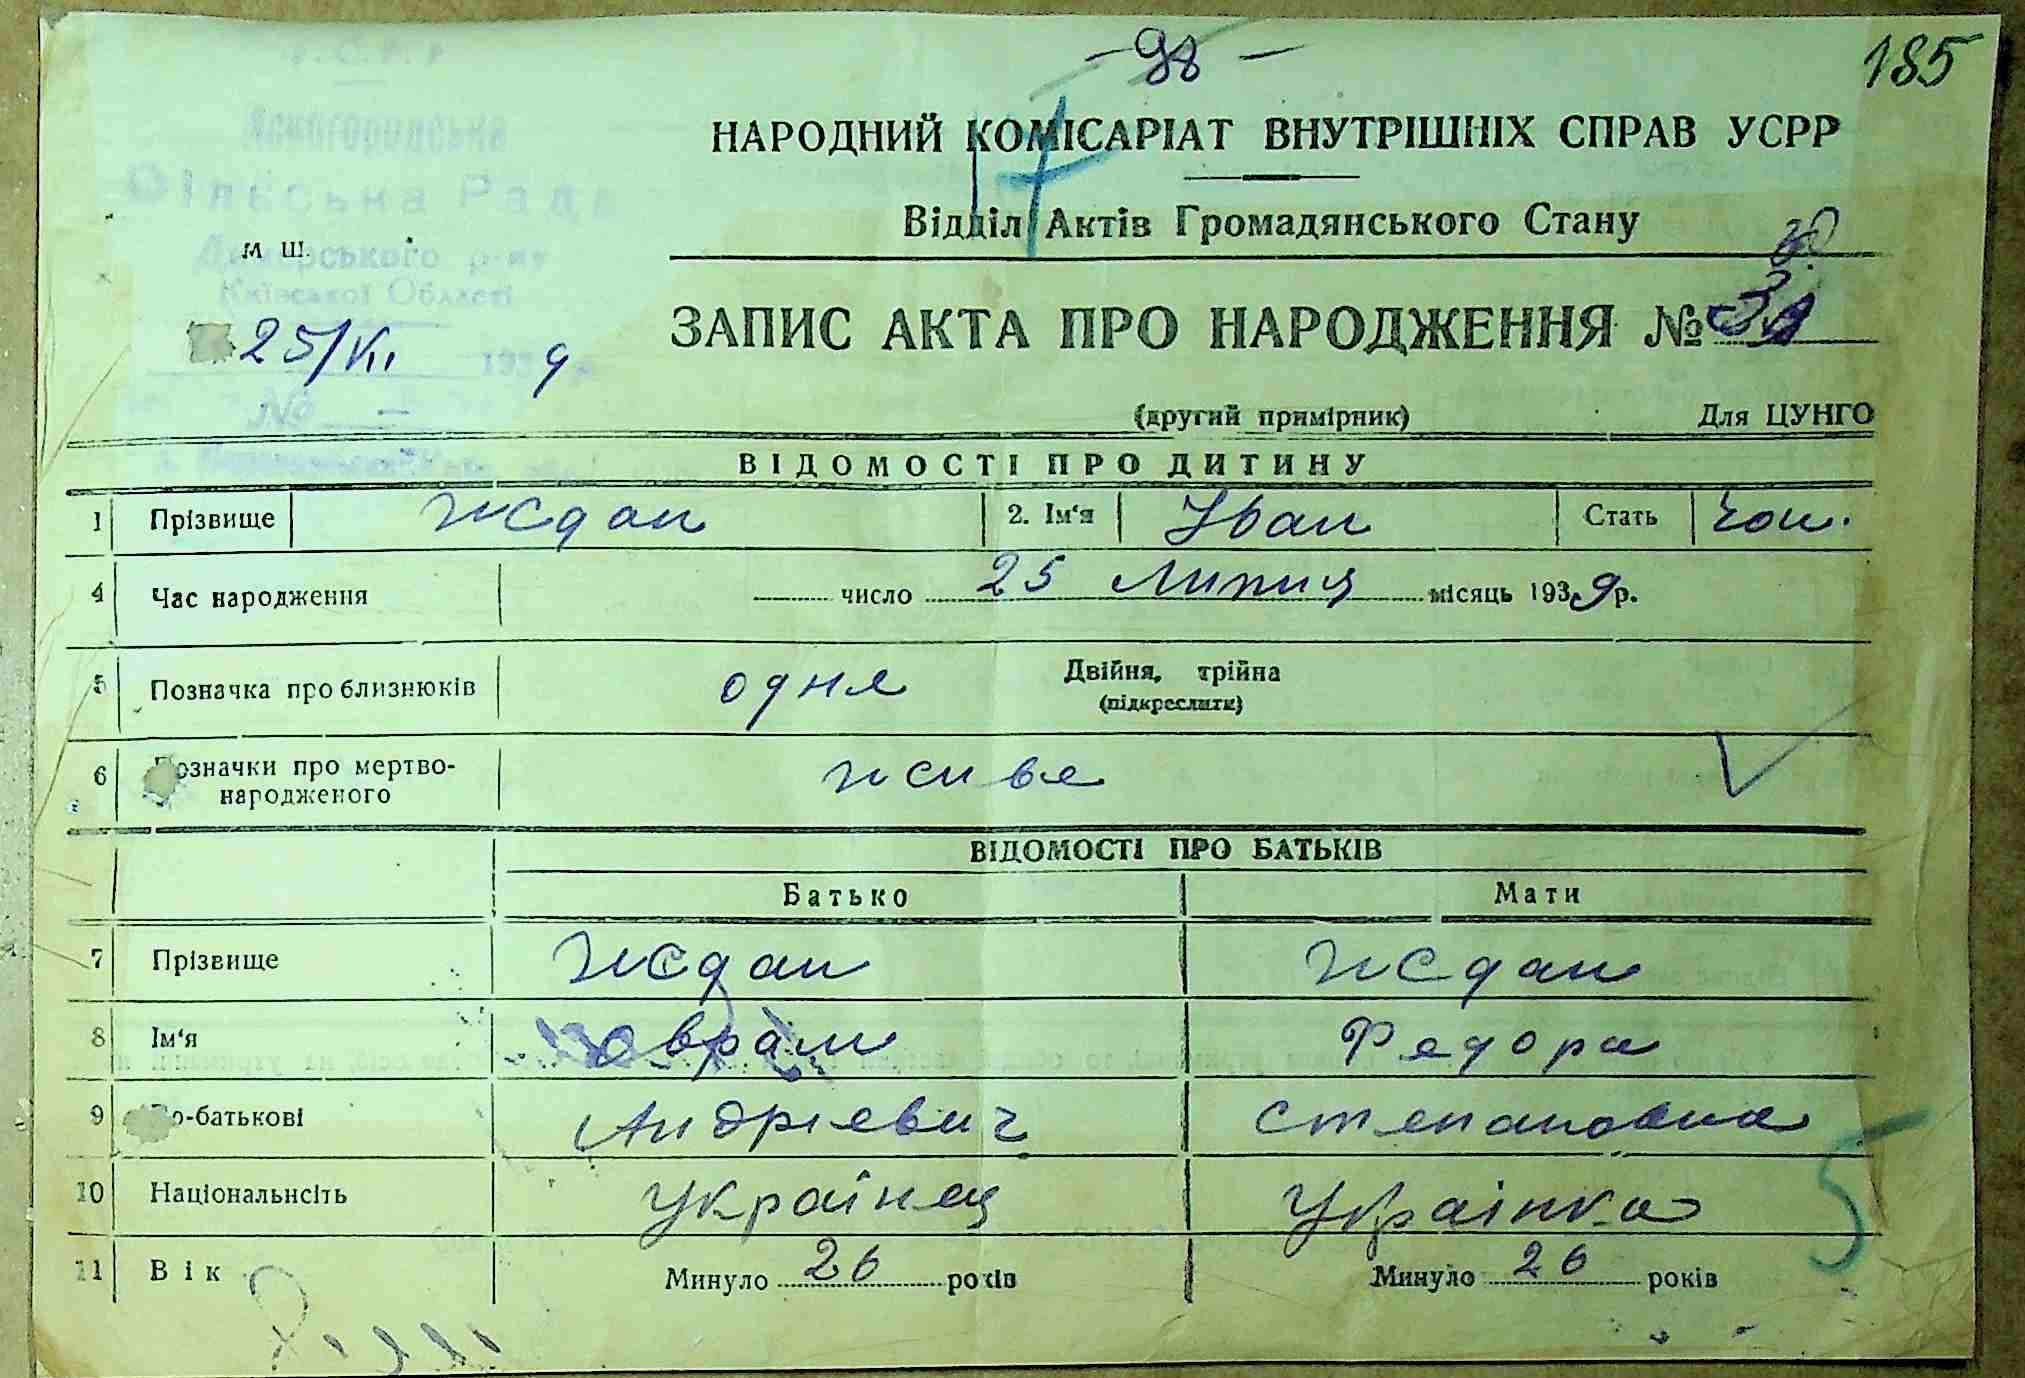 - 98 -
185
НАРОДНИЙ КОМІСАРІАТ ВНУТРІШНІХ СПРАВ УСРР
Відділ Актів Громадянського Стану
Сільська Рада
Димерського р-ну
Київської Області
м ш.
25/VII 1939 р.
№ —
ЗАПИС АКТА ПРО НАРОДЖЕННЯ №
(другий примірник) Для ЦУНГО
ВІДОМОСТІ ПРО ДИТИНУ
1 Прізвище Ждан 2. Ім'я Іван Стать чол.
4 Час народження число 25 Липня місяць 1939 р.
5 Позначка про близнюків одне Двійня, трійна
(підкреслити)
6 Позначки про мертво-
народженого живе
ВІДОМОСТІ ПРО БАТЬКІВ
Батько Мати
7 Прізвище Ждан Ждан
8 Ім'я Оврам Федора
9 По-батькові Андрієвич Степановна
10 Національнсіть Українец Українка
11 Вік Минуло 26 років Минуло 26 років
5